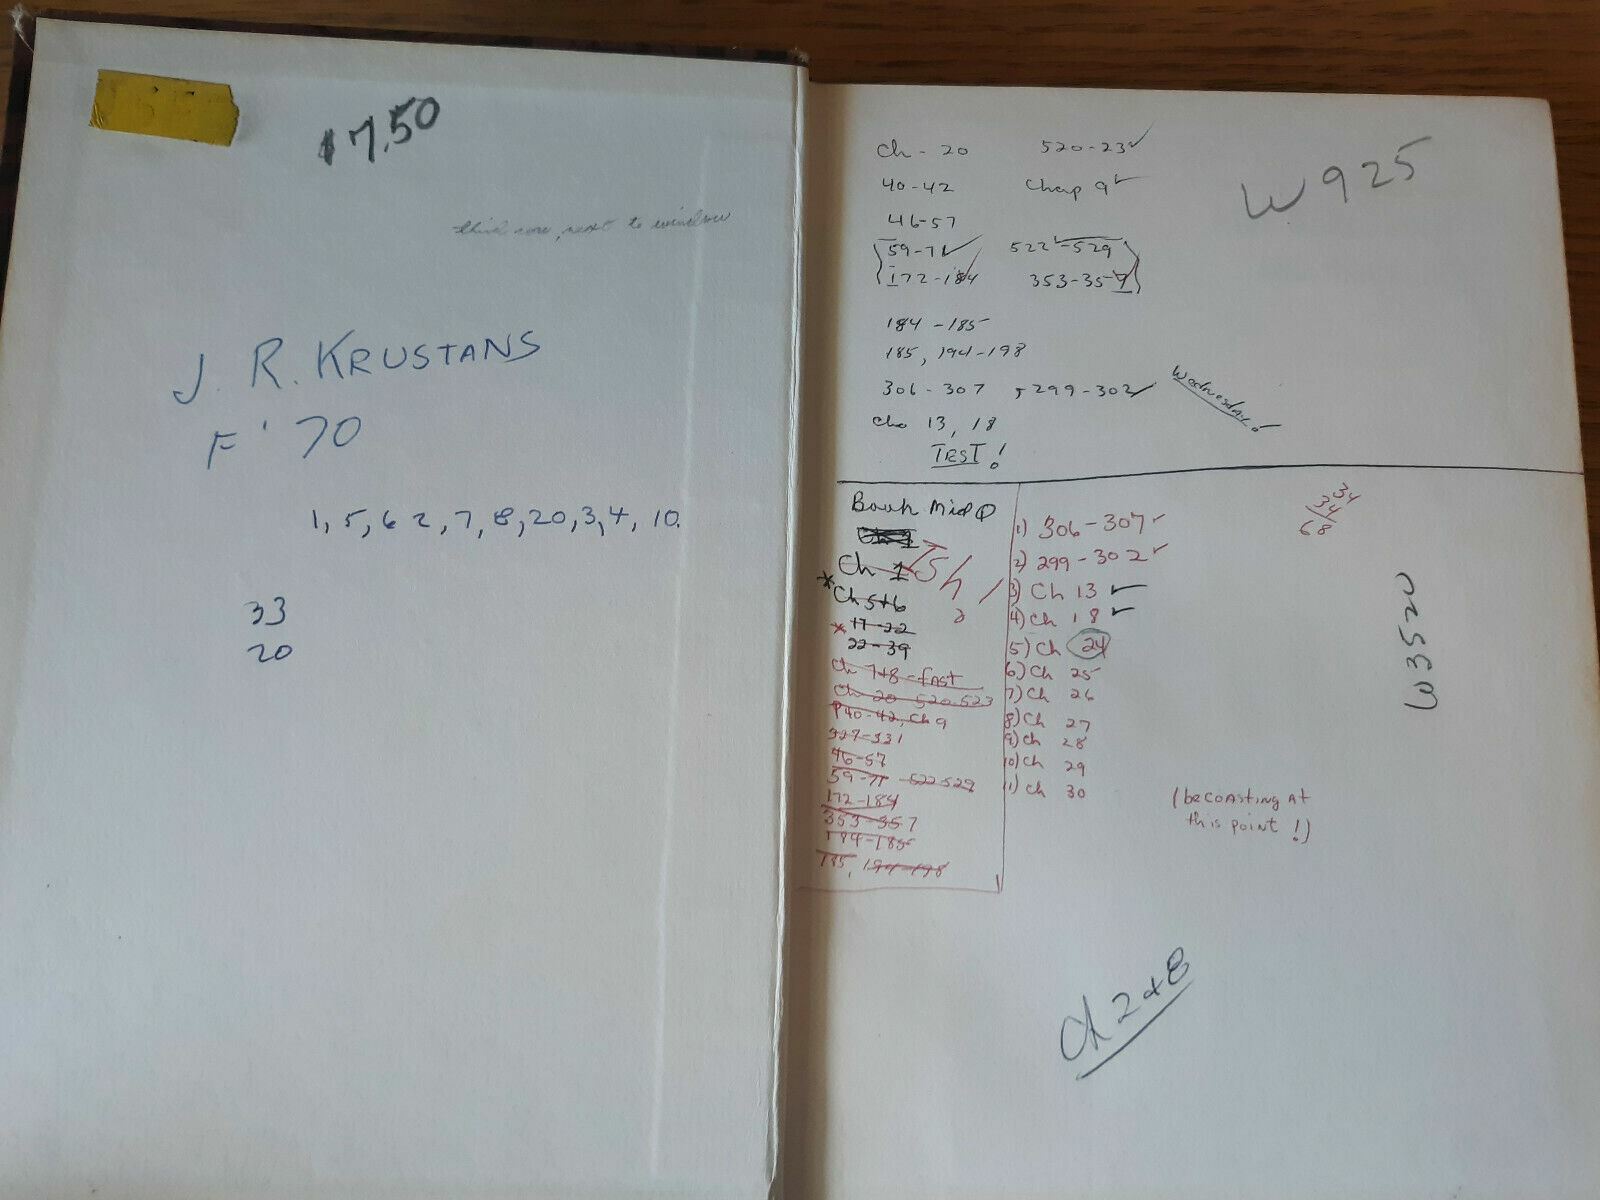 $7.50
third row, next to window
J. R. KRUSTANS
F '70
1, 5, 6 2, 7, 8, 20, 3, 4, 10.
33
20
Ch - 20 520-23 ✓
40-42 Chap 9 ✓
46-57
59-71 ✓ 522-529
172-184 353-357
184-185
185, 194-198
306-307 299-302 ✓
Wednesday!
Chs 13, 18
TEST!
W925
Book Mid Q
Ch 1
* Ch 5+6
* 17-22
22-39
Ch 7+8 - fast
Ch 20 520-523
P40-42, Ch 9
327-331
46-57
59-71 522-529
172-184
353-357
184-185
185, 194-198
1) 306-307 ✓
2) 299-302 ✓
3) Ch 13 ✓
4) Ch 18 ✓
5) Ch 24
6) Ch 25
7) Ch 26
8) Ch 27
9) Ch 28
10) Ch 29
11) Ch 30
34
34
68
W352
(be coasting at
this point!)
Ch 2+8